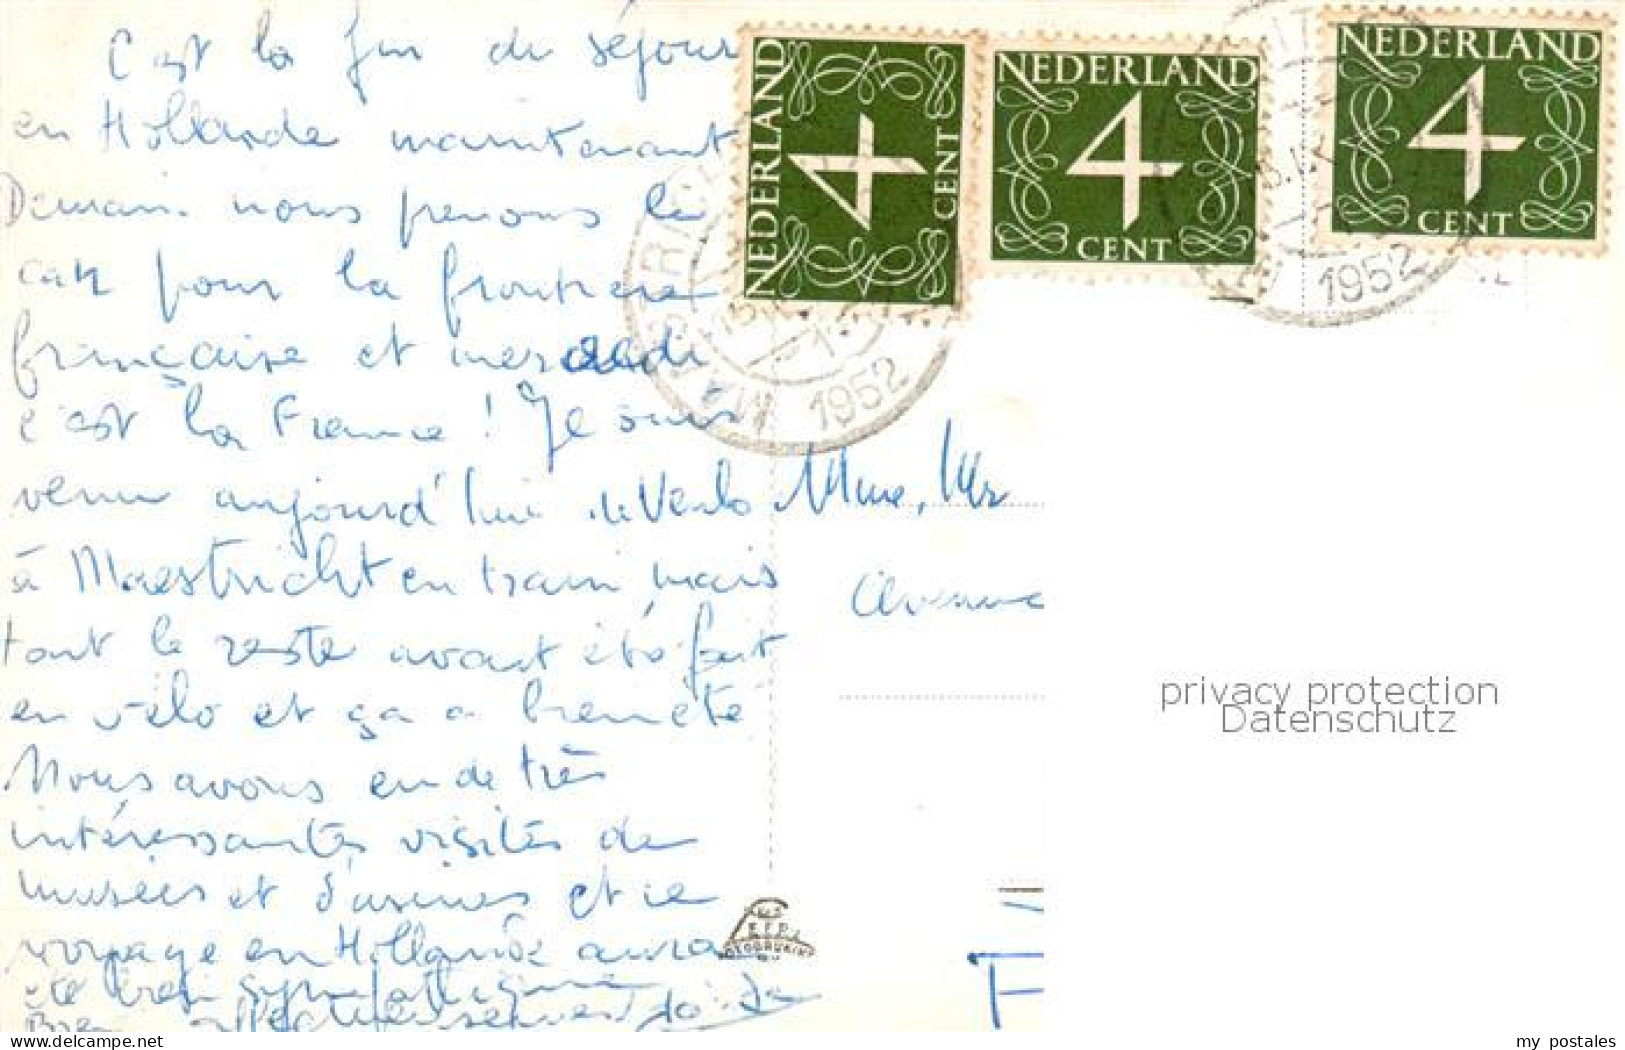 C'est la fin du séjour
en Hollande maintenant
Demain nous prenons le
car pour la frontière
française et mercredi
c'est la France ! Je suis
venu aujourd'hui de Venlo
à Maestricht en train, mais
tout le reste avait été fait
en vélo et ça a bien été
Nous avons eu de très
intéressantes visites de
musées et d'usines et ce
voyage en Hollande aura
été très sympathique
Bien affectueusement
Mme, Mr
Avenue
F
NEDERLAND
4
CENT
NEDERLAND
4
CENT
NEDERLAND
4
CENT
1952
1952
privacy protection
Datenschutz
www.ansichtskartencenter.com
my postales